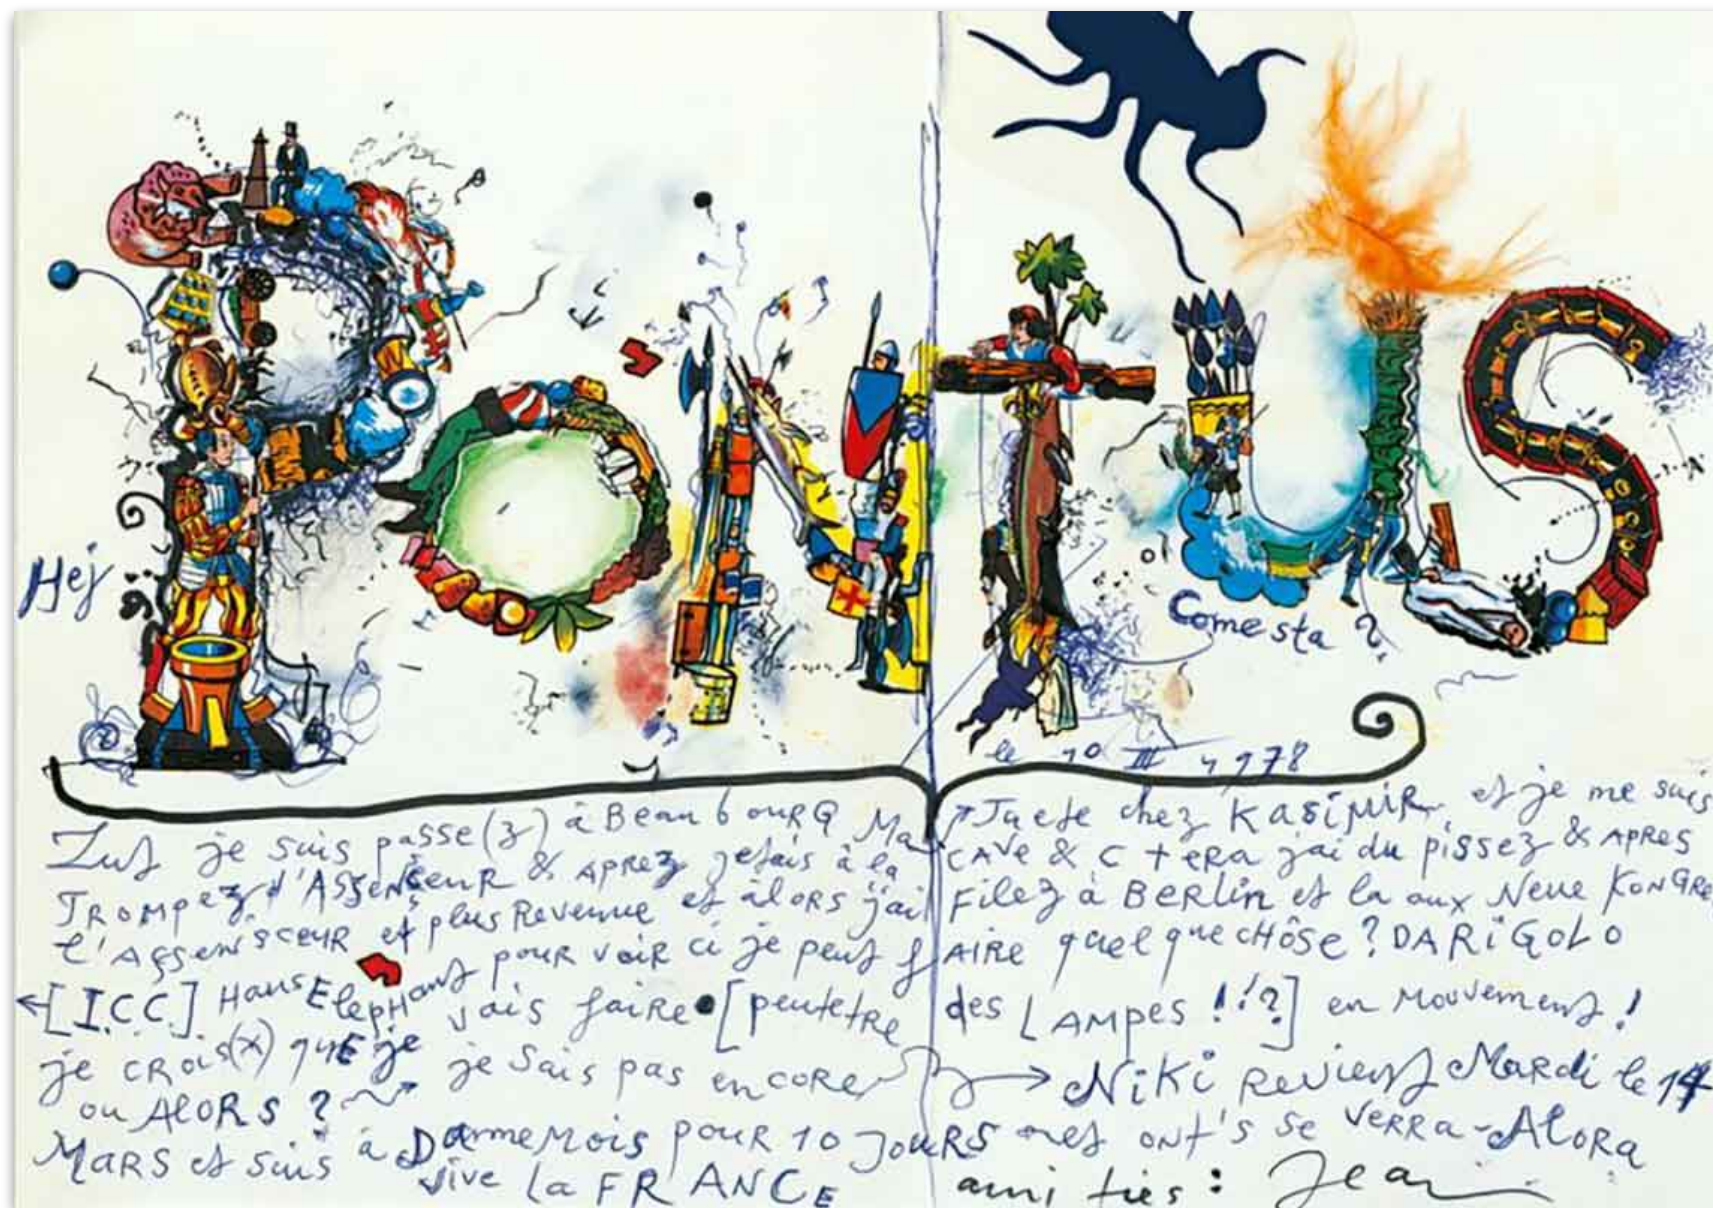 PONTUS
Hej
Come sta ?
le 10 III 1978
Zut je suis passe(z) à BeaubourG Mai J'aete chez KASiMiR et je me suis
TROMpez d'ASSENSeuR & APRez jetais à la CAVe & C t eRA jai du pissez & APRES
l'ASSenSceuR et plus Revenue et alors j'ai FiLez à BERLin et la aux Neue KonGRe
[I.C.C.] Haus ElepHant pour voir ci je peut fAIRE quelque cHôse ? DARiGoLo
je CROis(x) quE je vais faiRe [peutetre des LAMpes !!?] en Mouvement !
ou AloRS ? je Sais pas enCORe NiKi Revient Mardi le 14
MARS et suis à DanneMois pouR 10 JouRS onet ont's se VeRRA - AloRA
vive la FRANCE ami ties : Jean